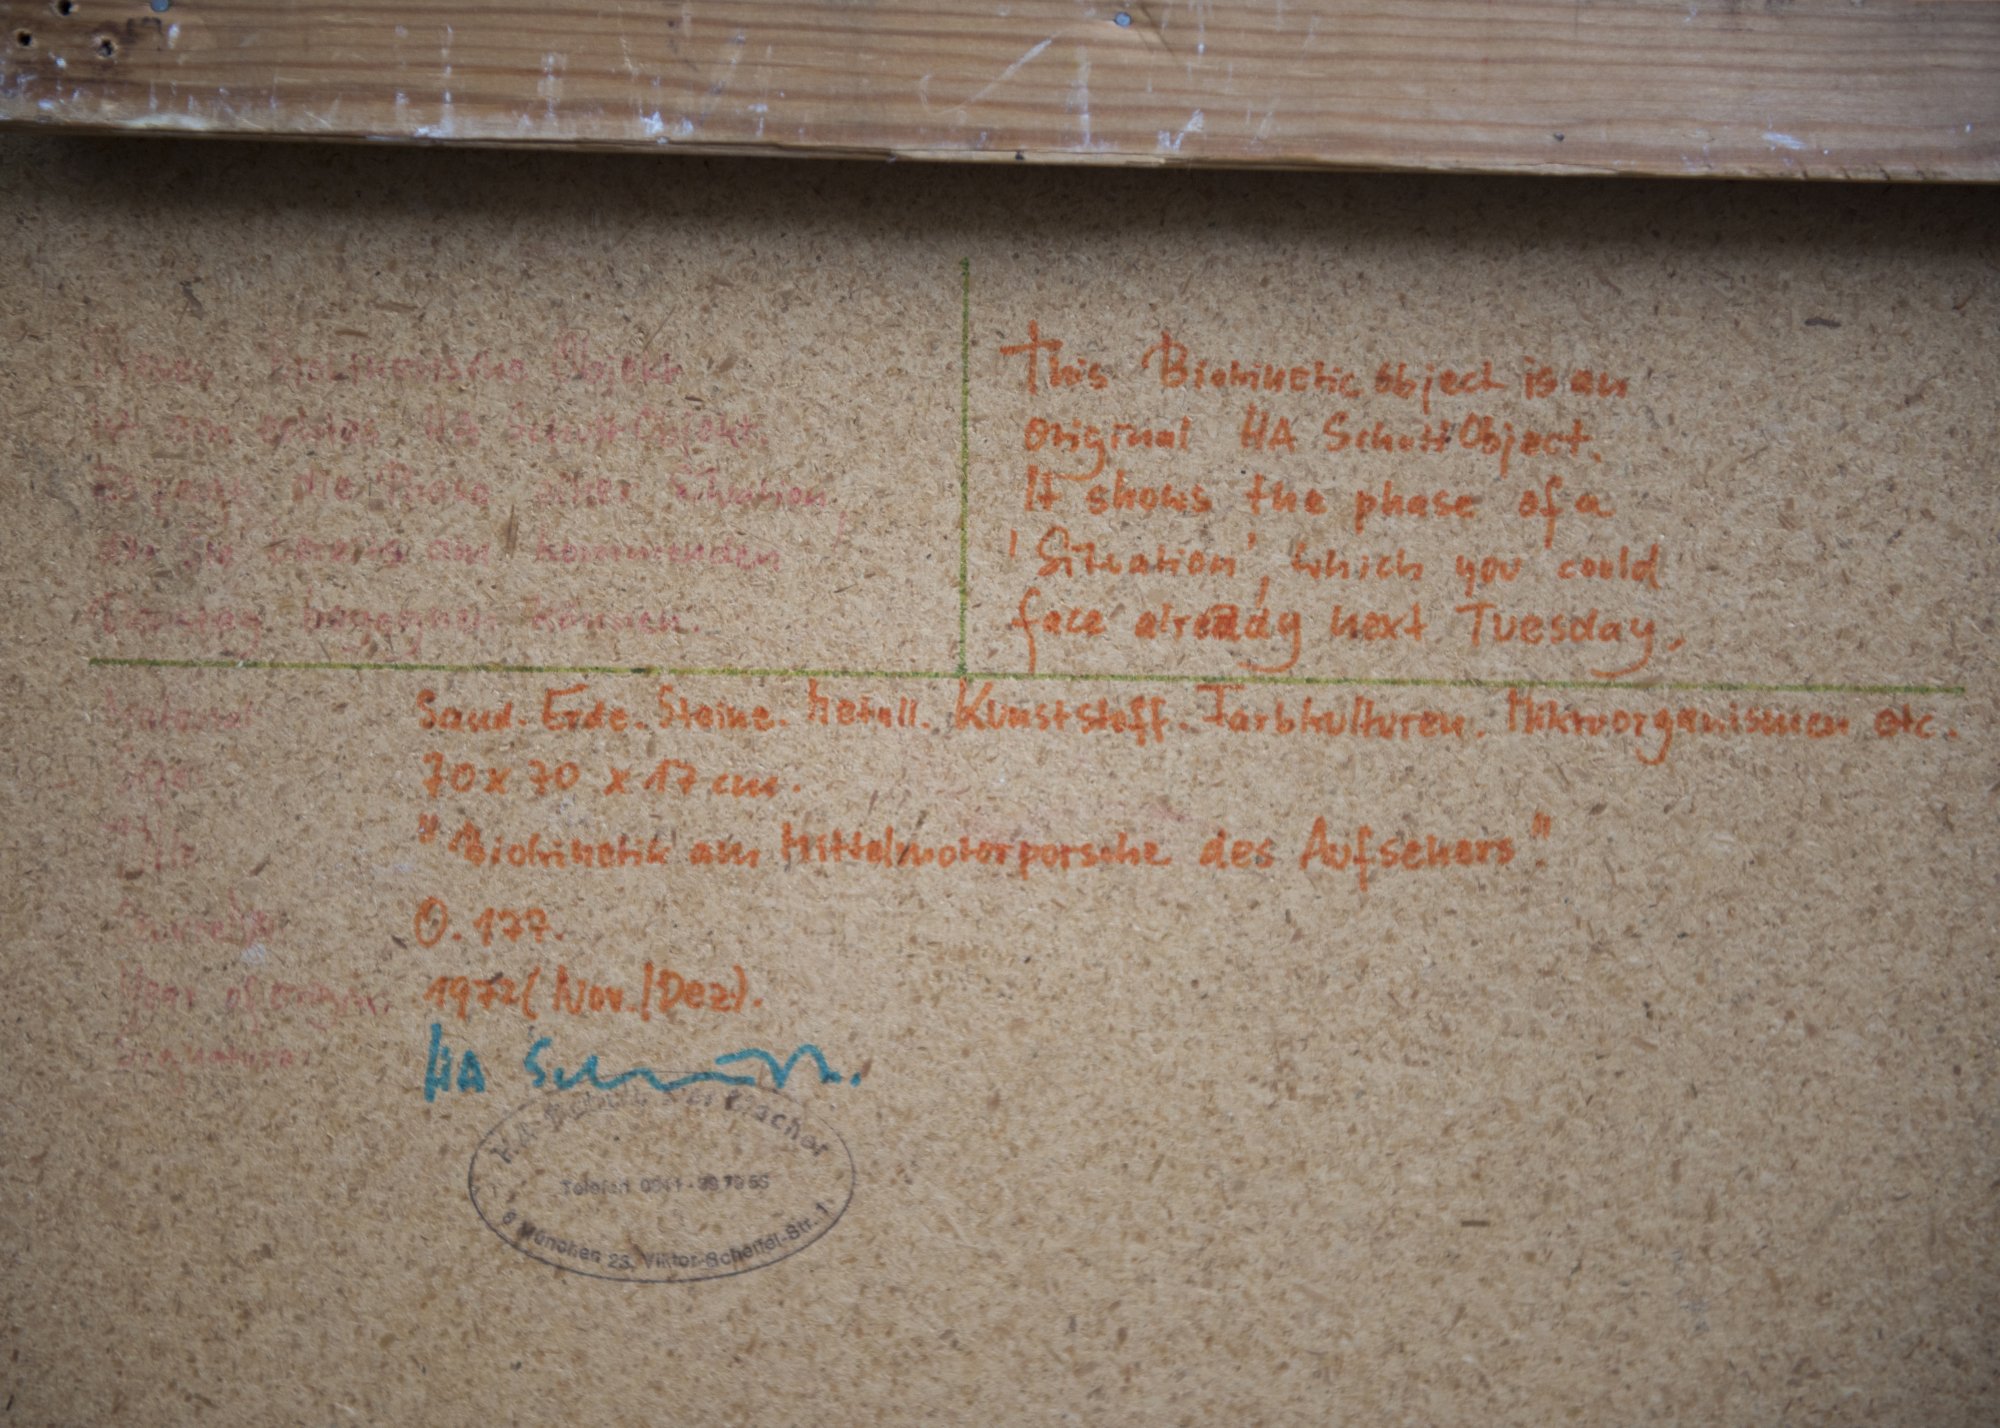 Dieses biokinetische Objekt
ist ein original HA Schult Objekt.
Es zeigt die Phase einer Situation,
der Sie bereits am kommenden
Dienstag begegnen können.
This Biokinetic object is an
original HA Schult Object.
It shows the phase of a
'Situation', which you could
face already next Tuesday.
Material Sand. Erde. Steine. Metall. Kunststoff. Farbkulturen. Mikroorganismen etc.
Size 70 x 70 x 17 cm.
Title "Biokinetik am Mittelmotorporsche des Aufsehers".
O. 177.
Year of origin. 1972 (Nov./Dez).
Signature. HA Schult.
Telefon 0811 -
8 München 23, Viktor-Scheffel-Str. 1